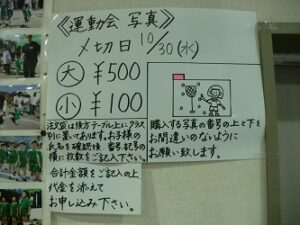 《運動会 写真》
〆切日 10/30(水)
大 ¥500
小 ¥100
注文袋は後方テーブル上にクラス
別に置いてあります。お子様の
氏名を確認後、番号、記号の
横に枚数をご記入下さい。
合計金額をご記入の上
代金を添えて
お申し込み下さい。
購入する写真の番号の上と下を
お間違いのないように
お願い致します。